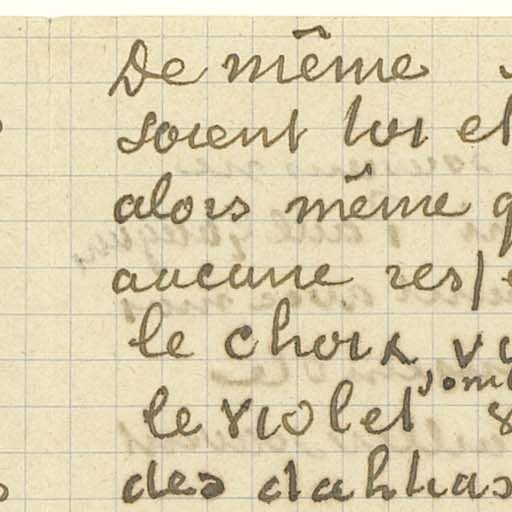 De même
soient loi et
alors même q
aucune resp
le choix vi
le violet
des dahlias